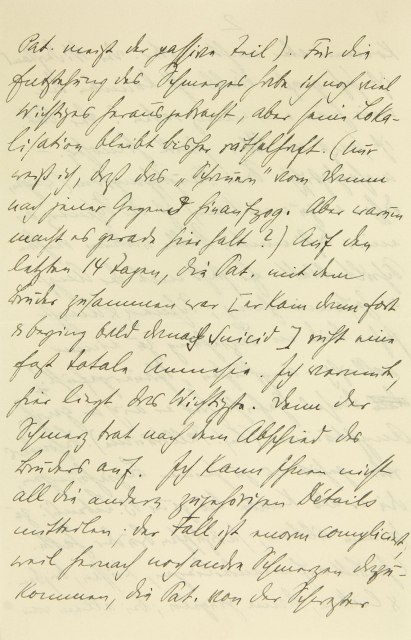 Pat. meist der passive Teil). Für die
Entstehung des Schmerzes habe ich noch viel
Wichtiges herausgebracht, aber seine Loka-
lisation bleibt bisher rätselhaft. (Nur
weiß ich, daß das „ vom Darm
nach jener Gegend hinaufzog. Aber warum
macht es gerade hier halt?) Auf den
letzten 14 Tagen, die Pat. mit dem
Bruder zusammen war [er kam dann fort
u beging bald danach Suicid] ruht eine
fast totale Amnesie. Ich vermute,
hier liegt das Wichtigste. Denn der
Schmerz trat nach dem Abschied des
Bruders auf. Ich kann Ihnen nicht
all die andern zugehörigen Détails
mitteilen; der Fall ist enorm compliciert,
weil hernach noch andre Schmerzen dazu-
kommen, die Pat. von der Schwester